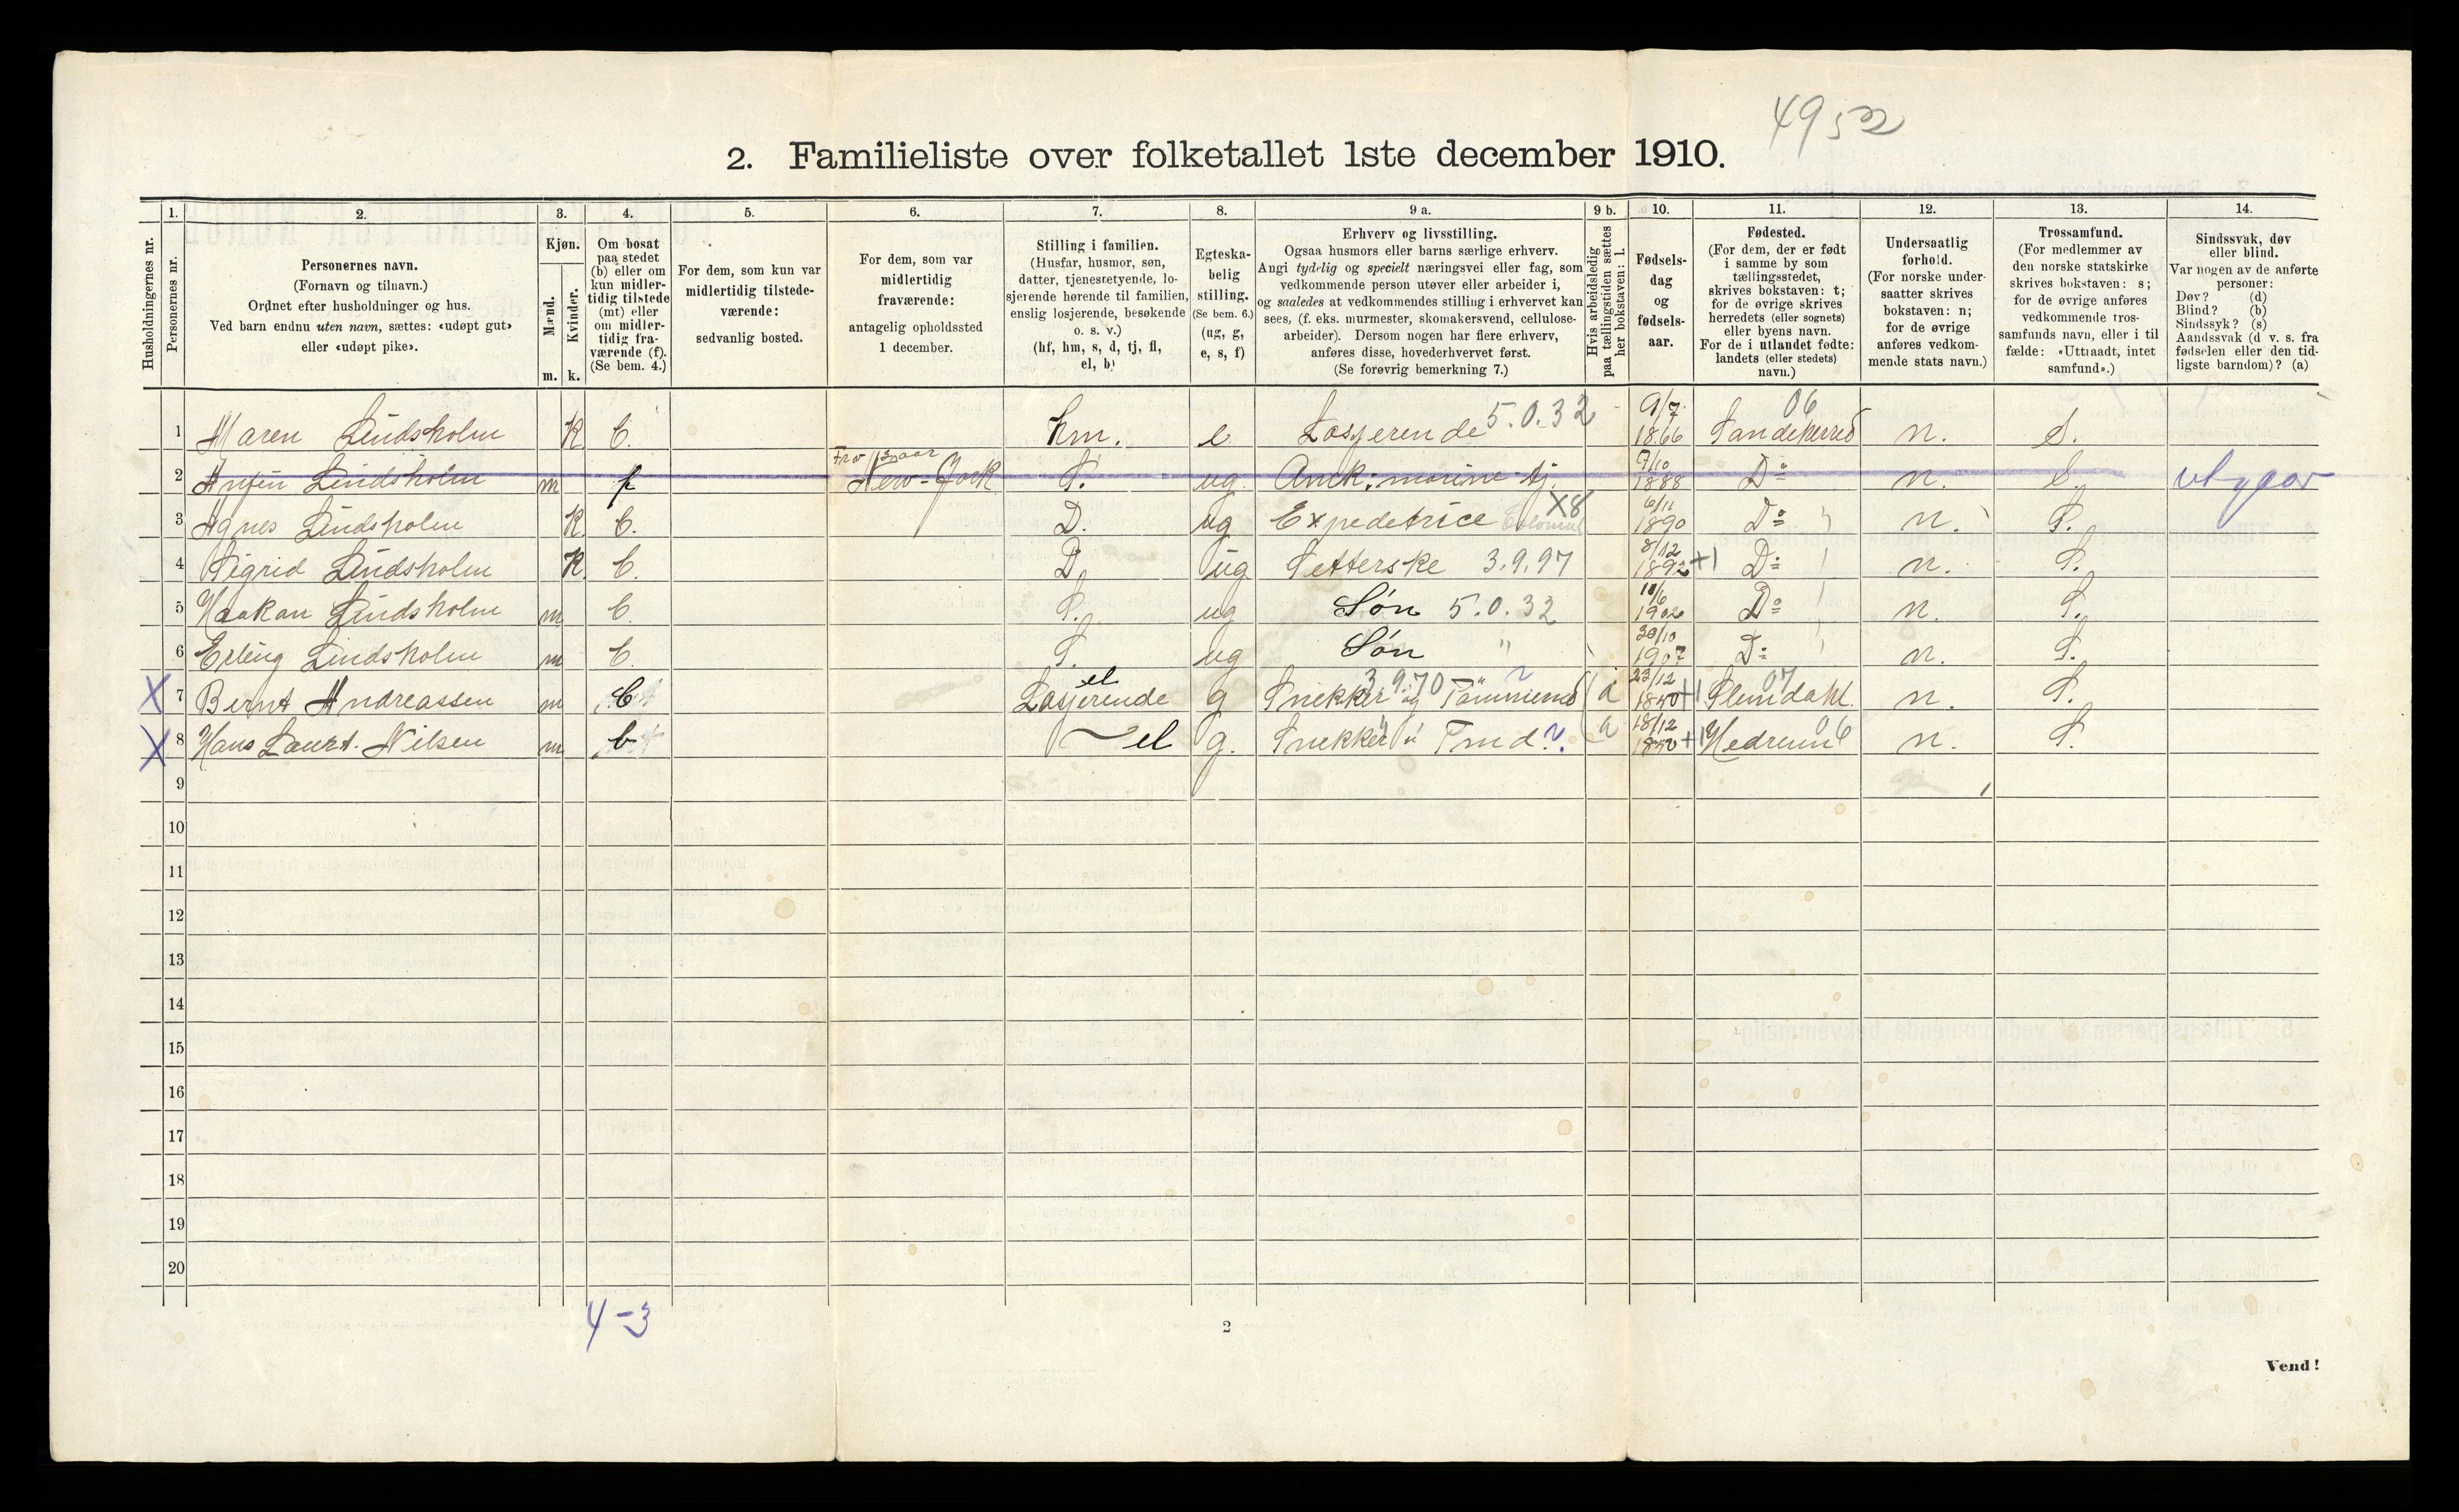 4952
2. Familieliste over folketallet 1ste december 1910.
Husholdningernes nr.
1. Personernes nr.
2. Personernes navn. (Fornavn og tilnavn.) Ordnet efter husholdninger og hus. Ved barn endnu uten navn, sættes: «udøpt gut» eller «udøpt pike».
3. Kjøn. Mænd. m. Kvinder. k.
4. Om bosat paa stedet (b) eller om kun midlertidig tilstede (mt) eller om midlertidig fraværende (f). (Se bem. 4.)
5. For dem, som kun var midlertidig tilstedeværende: sedvanlig bosted.
6. For dem, som var midlertidig fraværende: antagelig opholdssted 1 december.
7. Stilling i familien. (Husfar, husmor, søn, datter, tjenestetyende, losjerende hørende til familien, enslig losjerende, besøkende o. s. v.) (hf, hm, s, d, tj, fl, el, b)
8. Egteskabelig stilling. (Se bem. 6.) (ug, g, e, s, f)
9 a. Erhverv og livsstilling. Ogsaa husmors eller barns særlige erhverv. Angi tydelig og specielt næringsvei eller fag, som vedkommende person utøver eller arbeider i, og saaledes at vedkommendes stilling i erhvervet kan sees, (f. eks. murmester, skomakersvend, cellulose-arbeider). Dersom nogen har flere erhverv, anføres disse, hovederhvervet først. (Se forøvrig bemerkning 7.)
9 b. Hvis arbeidsledig paa tællingstiden sættes her bokstaven: l.
10. Fødselsdag og fødselsaar.
11. Fødested. (For dem, der er født i samme by som tællingsstedet, skrives bokstaven: t; for de øvrige skrives herredets (eller sognets) eller byens navn. For de i utlandet fødte: landets (eller stedets) navn.)
12. Undersaatlig forhold. (For norske undersaatter skrives bokstaven: n; for de øvrige anføres vedkommende stats navn.)
13. Trossamfund. (For medlemmer av den norske statskirke skrives bokstaven: s; for de øvrige anføres vedkommende trossamfunds navn, eller i tilfælde: «Uttraadt, intet samfund».)
14. Sindssvak, døv eller blind. Var nogen av de anførte personer: Døv? (d) Blind? (b) Sindssyk? (s) Aandssvak (d v. s. fra fødselen eller den tidligste barndom)? (a)
1 Maren Lindsholm K b. hm. e Losjerende 5.0.32 9/7 1866 Sandeherred 06 n. S.
2 Lindsholm m f New-York S. ug Amk. marine tj. 9/10 1888 Do n. S. utgaar
3 Agnes Lindsholm K b. D. ug Expedetrice Colonial X8 6/11 1890 Do n. S.
4 Sigrid Lindsholm K b. D. ug Setterske 3.9.97 8/12 1892 +1 Do n. S.
5 Haakan Lindsholm m b. S. ug Søn 5.0.32 11/6 1902 Do n. S.
6 Erling Lindsholm m b. S. ug Søn " 30/10 1907 Do n. S.
X 7 Bernt Andreassen m b Losjerende el g Snekker og Tømmermd 3 9.70 a 23/12 1840 +1 Slemdahl. 07 n. S.
X 8 Hans Laurt. Nilsen m b el g. Snekker " Tmd ? a 18/12 1852 +1 Hedrum 06 n. S.
9
10
11
12
13
14
15
16
17
18
19
20
4-3
2
Vend!